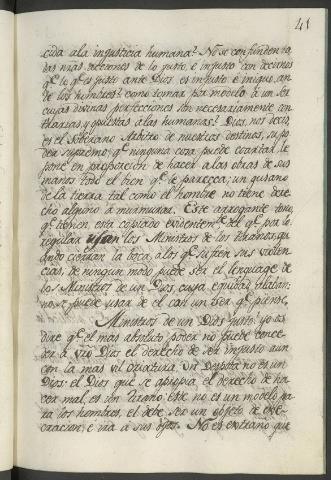 41
cida a la injusticia humana? No se confunden to
das nras. ideas de lo justo, e injusto con decirnos
qe. lo qe. es justo ante Dios es injusto e iniquo an
te los hombres? como tomar por modelo a un Ser
cuias divinas perfecciones son necesariamente con
trarias y opuestas a las humanas? Dios, nos decis,
es el Soberano Arbitro de nuestros destinos, su po
der supremo qe. ninguna cosa puede coartar, le
pone en proporcion de hacer a las obras de sus
manos todo el bien qe. le parezca; un gusano
de la tierra tal como el hombre no tiene dere
cho alguno a murmurar. Este arrogante tono
qe. tienen, esta copiado evidentemte. del qe. por lo
regular usan los Ministros de los tiranos, qu
ando cierran la boca, a los qe. sufren sus violen
cias; de ningun modo puede ser el lenguage de
los Ministros de un Dios, cuya equidad
no se puede usar de el con un ser qe. piense,
Ministros de un Dios justo! yo os
dire qe. el mas absoluto poder no puede conce
der a vro Dios el derecho de ser injusto aun
con la mas vil criatura. Un Despota no es un
Dios: el Dios que se apropia el derecho de ha
cer mal, es un tirano: Este no es un modelo pa
ra los hombres, el debe ser un objeto de exe
cracion, e ira a sus ojos. No es extraño que